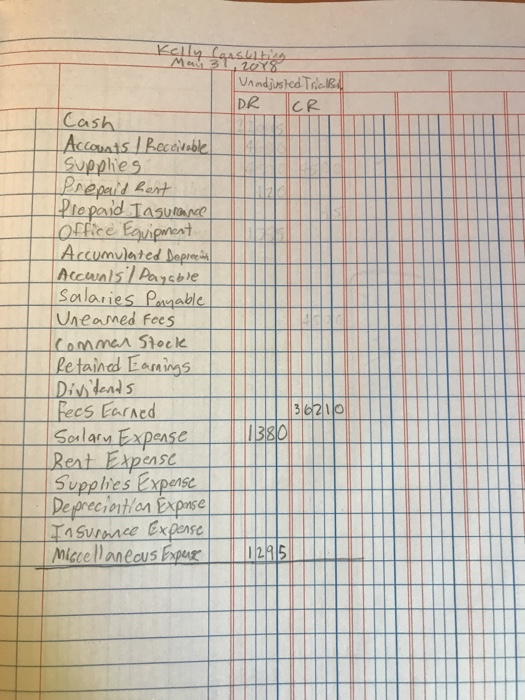 Kelly Consulting
May 31, 2018
Unadjusted Trial Bal.
DR CR
Cash
Accounts / Receivable
Supplies
Prepaid Rent
Prepaid Insurance
Office Equipment
Accumulated Deprecia
Accounts / Payable
Salaries Payable
Unearned Fees
Common Stock
Retained Earnings
Dividends
Fees Earned 36210
Salary Expense 1380
Rent Expense
Supplies Expense
Depreciation Expense
Insurance Expense
Miscellaneous Expense 1295